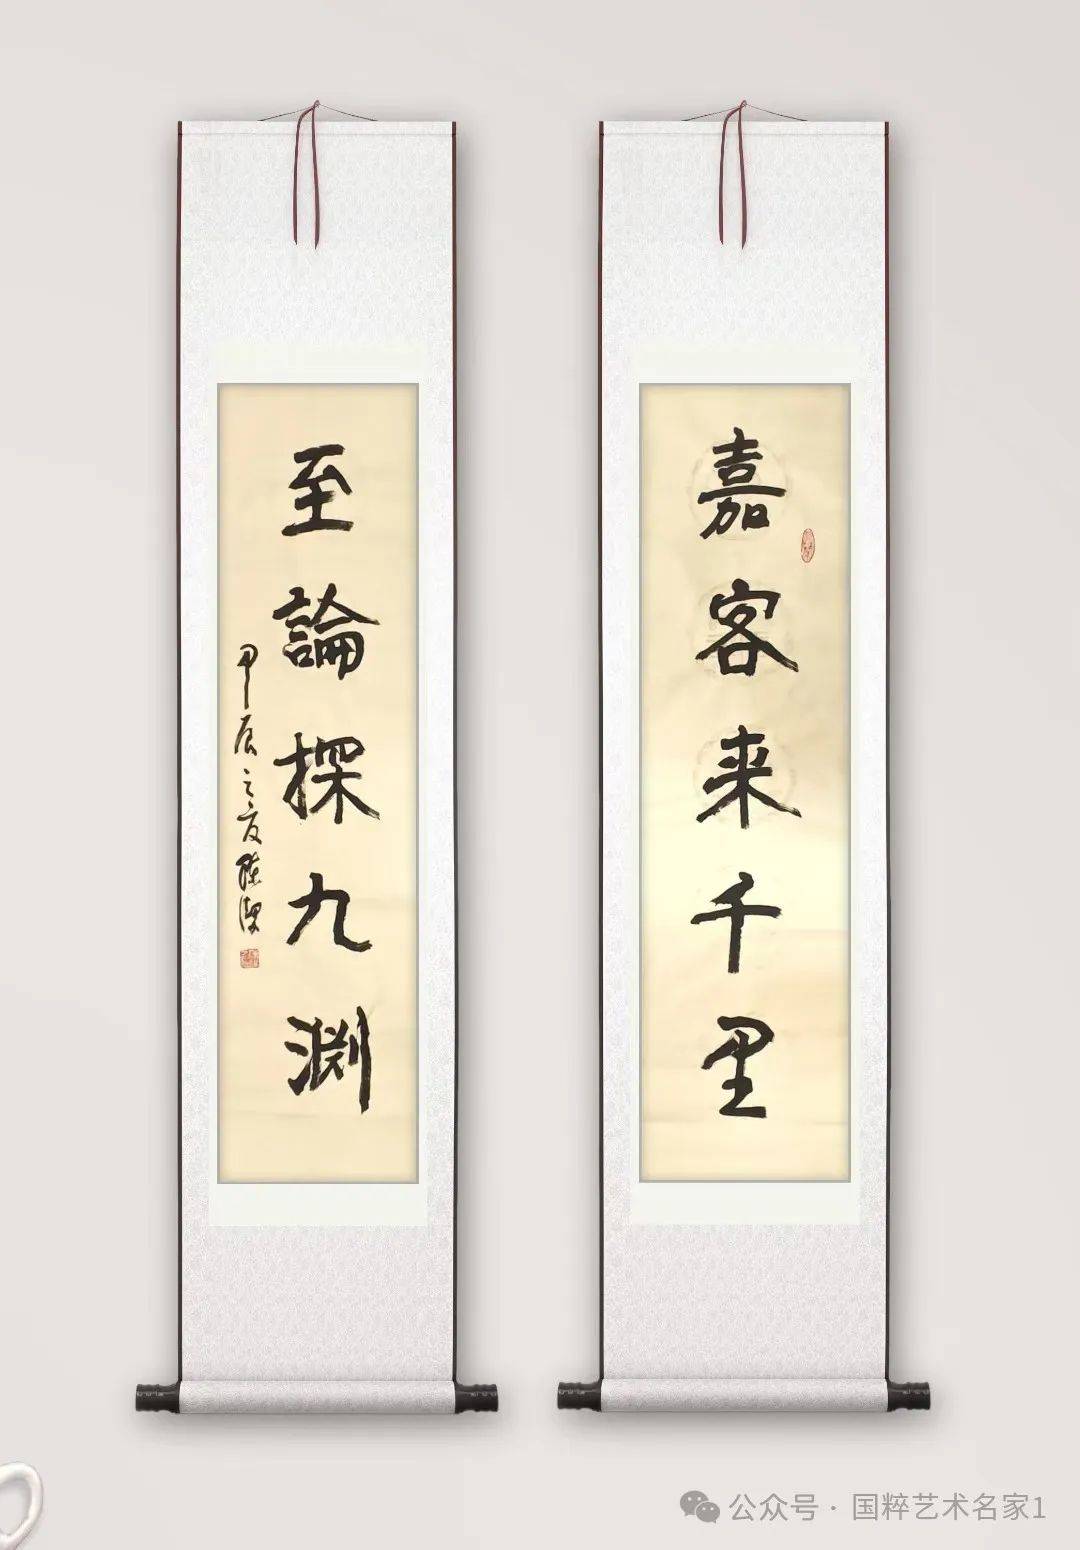 嘉客来千里
至論探九淵
甲辰之夏陈潔
公众号 · 国粹艺术名家1